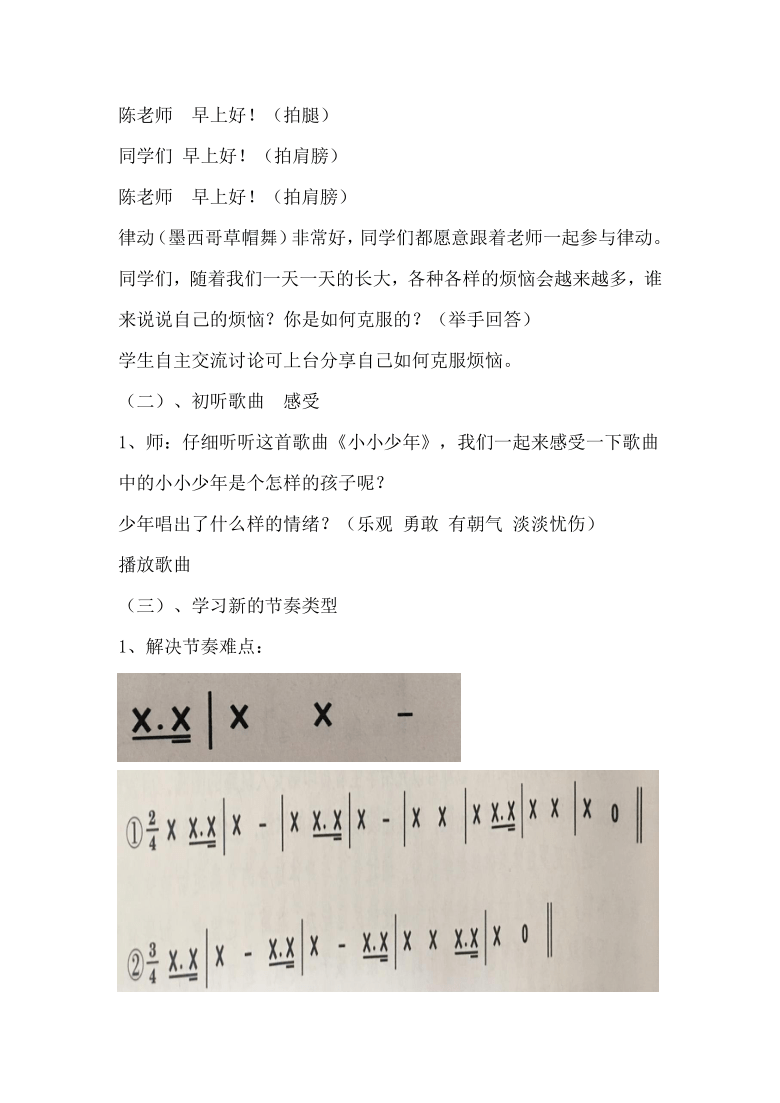 陈老师  早上好！（拍腿）
同学们 早上好！（拍肩膀）
陈老师  早上好！（拍肩膀）
律动（墨西哥草帽舞）非常好，同学们都愿意跟着老师一起参与律动。
同学们，随着我们一天一天的长大，各种各样的烦恼会越来越多，谁
来说说自己的烦恼？你是如何克服的？（举手回答）
学生自主交流讨论可上台分享自己如何克服烦恼。
（二）、初听歌曲  感受
1、师：仔细听听这首歌曲《小小少年》，我们一起来感受一下歌曲
中的小小少年是个怎样的孩子呢？
少年唱出了什么样的情绪？（乐观 勇敢 有朝气 淡淡忧伤）
播放歌曲
（三）、学习新的节奏类型
1、解决节奏难点：
X.X | X X -
① 2/4 X X.X | X - | X X.X | X - | X X | X X.X | X X | X 0 ‖
② 3/4 X.X | X - X.X | X - X.X | X X X.X | X 0 ‖